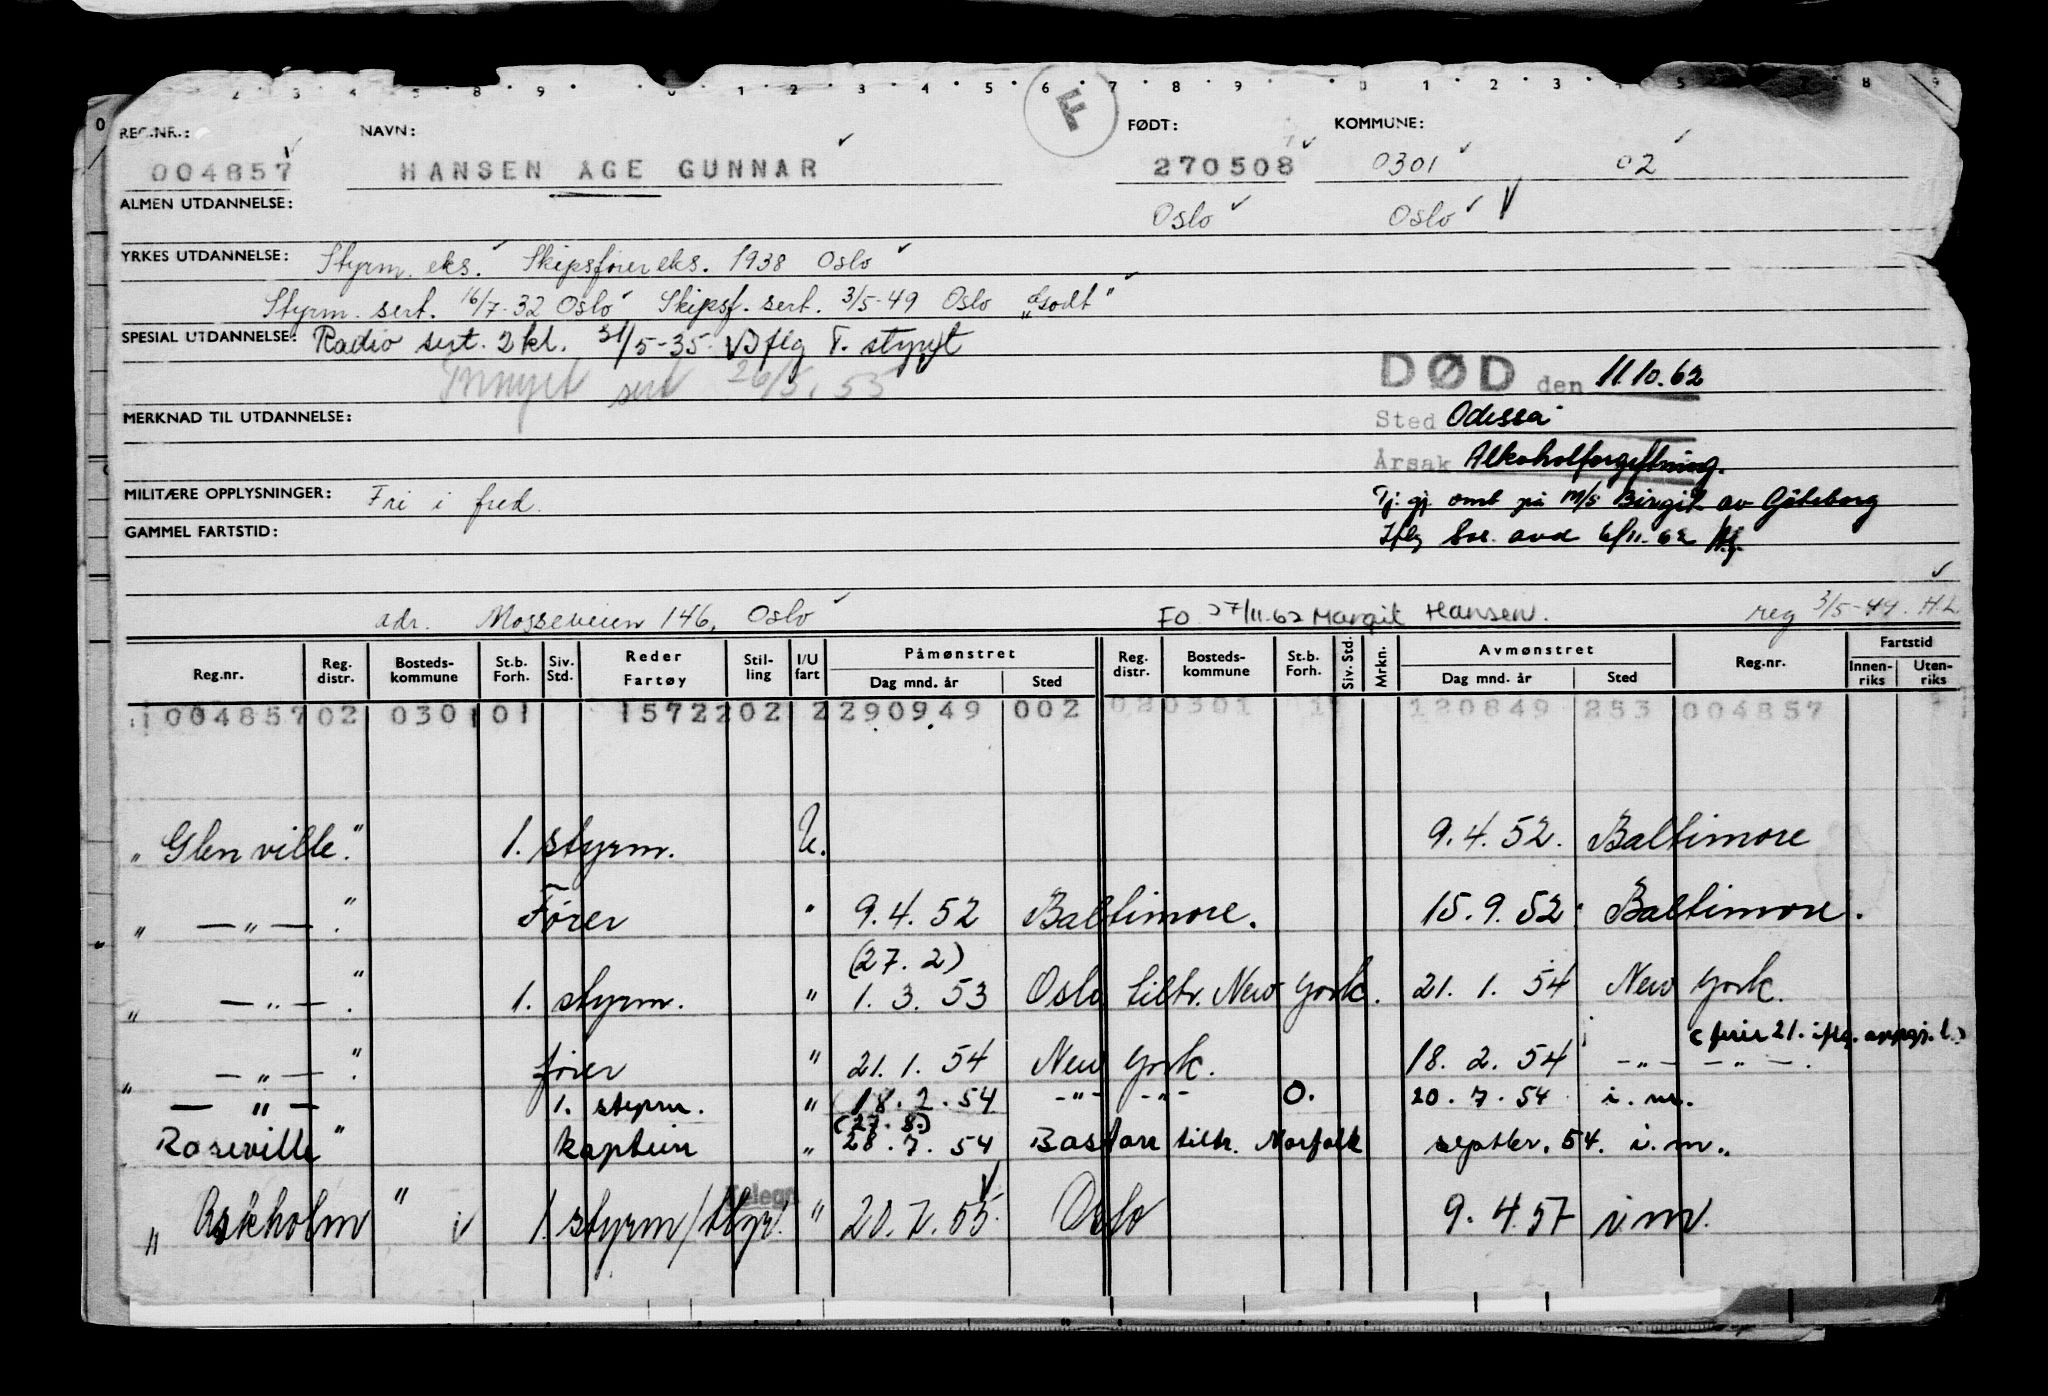 F
REG.NR.: NAVN: FØDT: KOMMUNE:
004857 HANSEN AGE GUNNAR 270508 0301 02
ALMEN UTDANNELSE: Oslo Oslo
YRKES UTDANNELSE: Styrm. eks. Skipsfører eks. 1938 Oslo
Styrm. sert. 16/7-32 Oslo Skipsf. sert. 3/5-49 Oslo „Godt"
SPESIAL UTDANNELSE: Radio sert. 2 kl. 31/5-35.
sert 26/5.55
DØD den 11.10.62
MERKNAD TIL UTDANNELSE:
Sted Odessa
Årsak Alkoholforgiftning.
MILITÆRE OPPLYSNINGER: Fri i fred.
Tj. gj. omb på m/s Birgit av Göteborg
GAMMEL FARTSTID:
Iflg Sos. avd 6/11.62
adr. Mosseveien 146, Oslo FO 27/11.62 Margit Hansen. reg 3/5-49. H.L
Reg.nr. Reg. distr. Bosteds- kommune St.b. Forh. Siv. Std. Reder Fartøy Stil- ling I/U fart Påmønstret Dag mnd. år Sted Reg. distr. Bosteds- kommune St.b. Forh. Siv. Std. Mrkn. Avmønstret Dag mnd. år Sted Reg.nr. Fartstid Innen- riks Uten- riks
004857 02 0301 01 15722 02 2 290949 002 02 0301 1 120849 253 004857
„Glenville." 1. styrm. U. 9.4.52. Baltimore
„ —„— ." Fører " 9.4.52 Baltimore. 15.9.52. Baltimore.
(27.2)
„ —„— ." 1. styrm. " 1.3.53 Oslo tiltr. New York. 21.1.54 New York.
„ —„— ." fører " 21.1.54 New York. 18.2.54 —„— —„—.
—„— " 1. styrm. " (18.2.54 -"- -"- O. 20.7.54 i.m.
(27.8.)
„Roseville" kaptein " 28.7.54 Boston tiltr. Norfolk septbr. 54. i.m.
Telegr.
„Askholm" 1. styrm/ " 20.7.55. Oslo 9.4.57 i m.